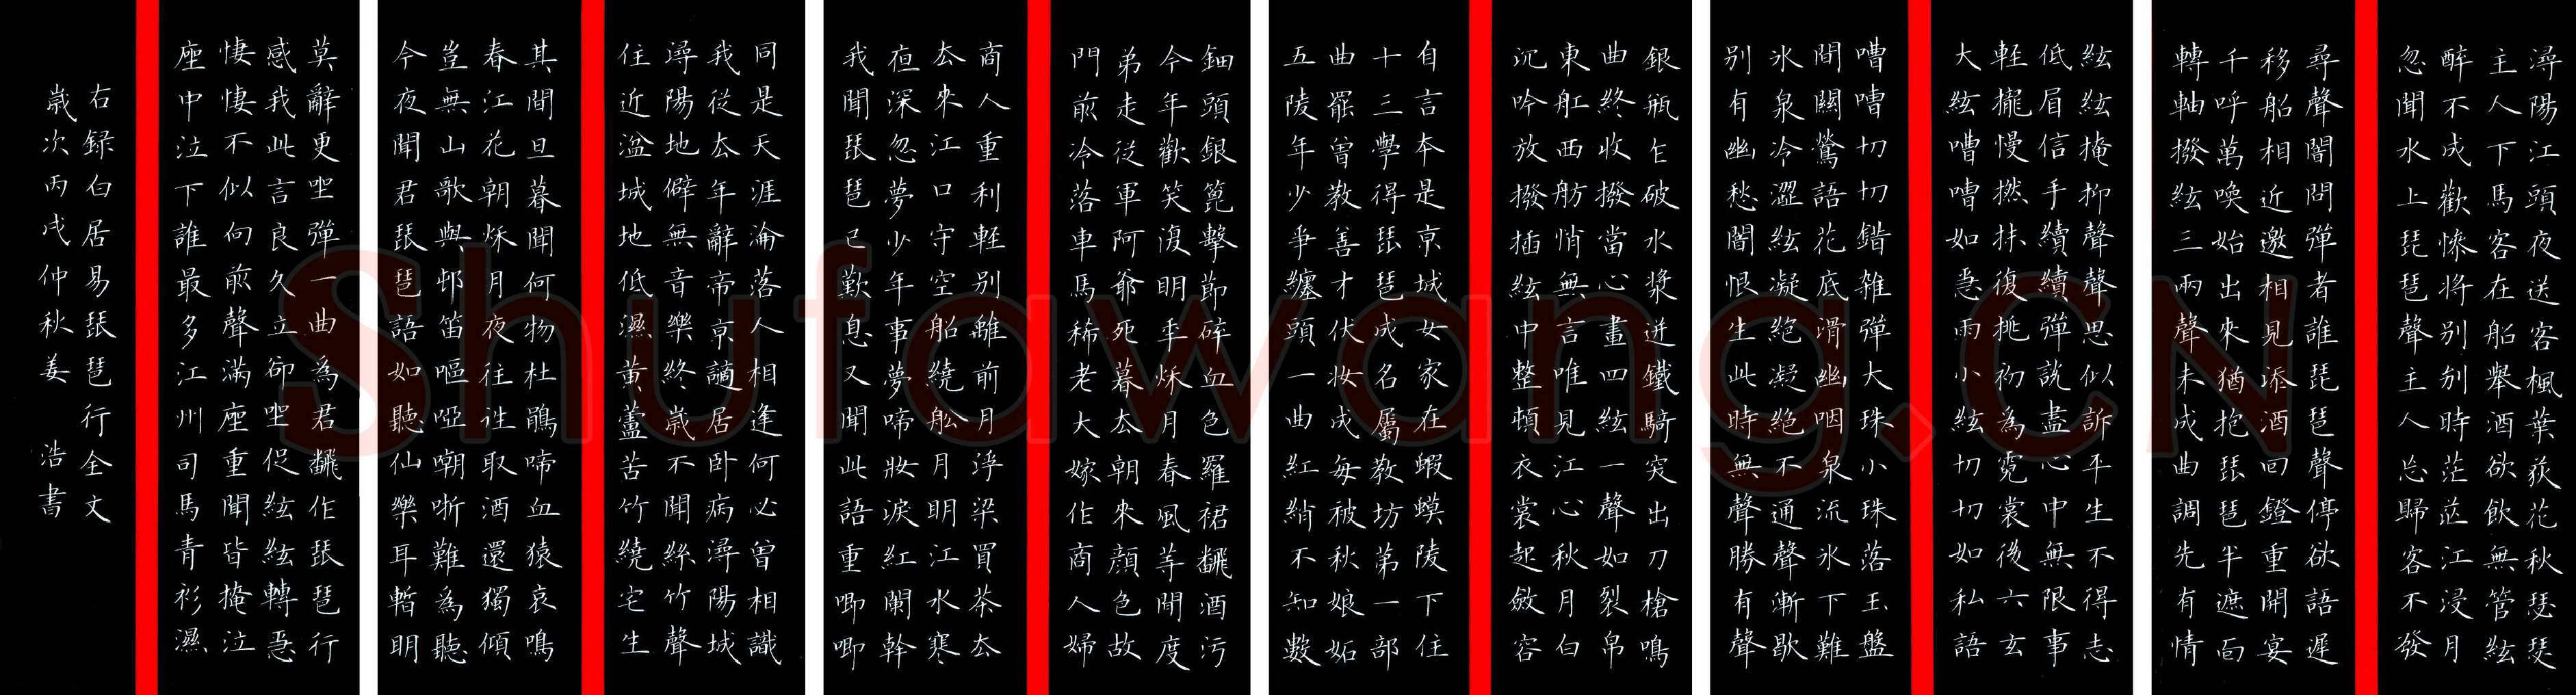 潯陽江頭夜送客楓葉荻花秋瑟瑟
主人下馬客在船舉酒欲飲無管絃
醉不成歡慘將别别時茫茫江浸月
忽聞水上琵琶聲主人忘歸客不發
尋聲闇問彈者誰琵琶聲停欲語遲
移船相近邀相見添酒回鐙重開宴
千呼萬喚始出來猶抱琵琶半遮面
轉軸撥絃三兩聲未成曲調先有情
絃絃掩抑聲聲思似訴平生不得志
低眉信手續續彈説盡心中無限事
輕攏慢撚抹復挑初為霓裳後六玄
大絃嘈嘈如急雨小絃切切如私語
嘈嘈切切錯雜彈大珠小珠落玉盤
間關鶯語花底滑幽咽泉流氷下難
氷泉冷澀絃凝絕凝絕不通聲漸歇
别有幽愁闇恨生此時無聲勝有聲
銀瓶乍破水漿迸鐵騎突出刀槍鳴
曲終收撥當心畫四絃一聲如裂帛
東舡西舫悄無言唯見江心秋月白
沉吟放撥插絃中整頓衣裳起斂容
自言本是京城女家在蝦蟆陵下住
十三學得琵琶成名屬教坊第一部
曲罷曾教善才伏妝成每被秋娘妬
五陵年少爭纏頭一曲紅綃不知數
鈿頭銀篦擊節碎血色羅裙飜酒污
今年歡笑復明年秋月春風等閒度
弟走從軍阿爺死暮去朝來顏色故
門前冷落車馬稀老大嫁作商人婦
商人重利輕别離前月浮梁買茶去
去來江口守空船繞舩月明江水寒
夜深忽夢少年事夢啼妝淚紅闌幹
我聞琵琶已歎息又聞此語重唧唧
同是天涯淪落人相逢何必曾相識
我從去年辭帝京謫居卧病潯陽城
潯陽地僻無音樂終歲不聞絲竹聲
住近湓城地低濕黃蘆苦竹繞宅生
其間旦暮聞何物杜鵑啼血猿哀鳴
春江花朝秋月夜往往取酒還獨傾
豈無山歌與邨笛嘔啞嘲哳難為聽
今夜聞君琵琶語如聽仙樂耳暫明
莫辭更坐彈一曲為君飜作琵琶行
感我此言良久立卻坐促絃絃轉急
悽悽不似向前聲滿座重聞皆掩泣
座中泣下誰最多江州司馬青衫濕
右録白居易琵琶行全文
歲次丙戌仲秋姜 浩書
Shufawang.CN